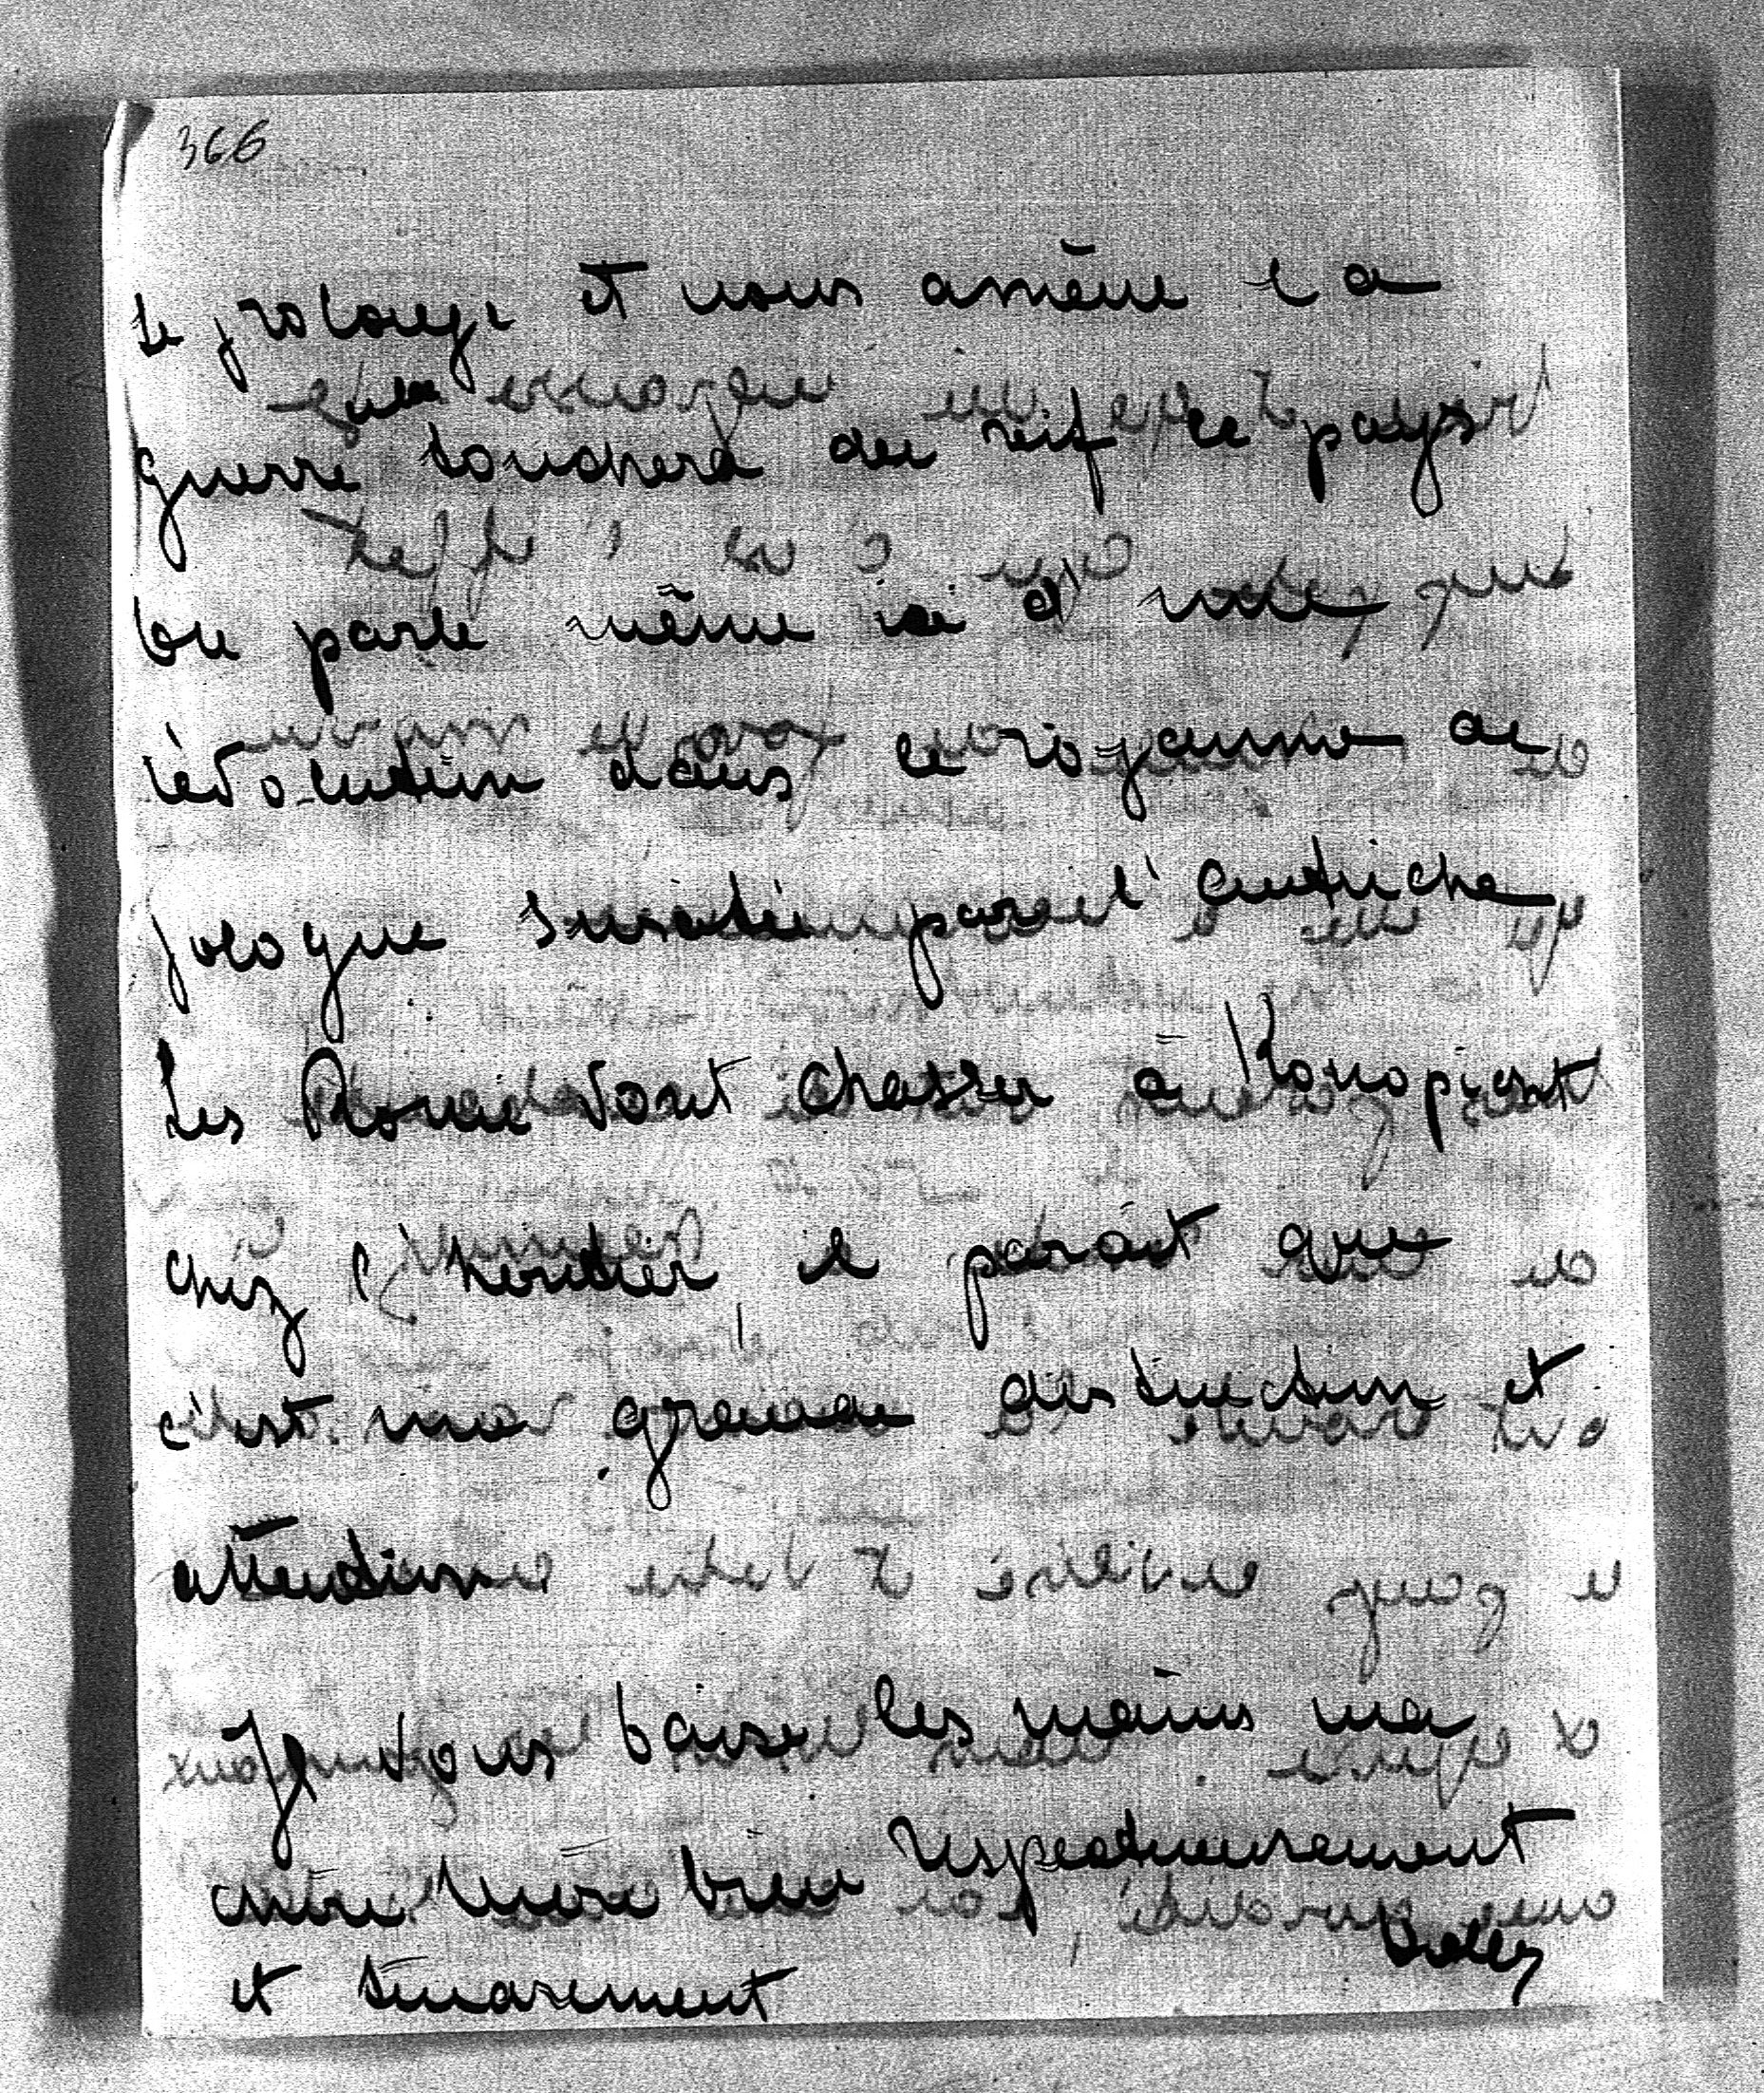 366
se prolonge et nous amène la
guerre touchera au vif le pays
On parle même ici d'une
révolution dans le royaume de
pologne suscité par l'autriche
Les Ronie vont chasser à Konopischt
chez l'héritier, il parait que
c'est une grande distinction et
attention
Je vous baise les mains ma
chère Mère bien respectueusement
et tendrement
Dolly